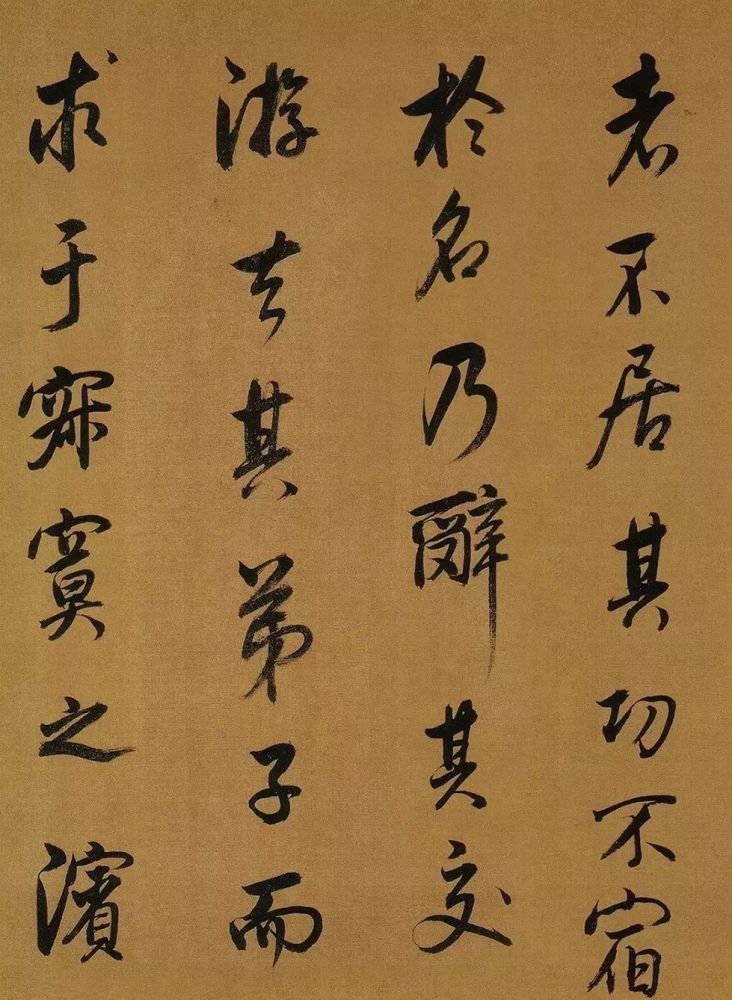 者不居其功不宿
於名乃辭其交
游去其弟子而
求于寂寞之濱